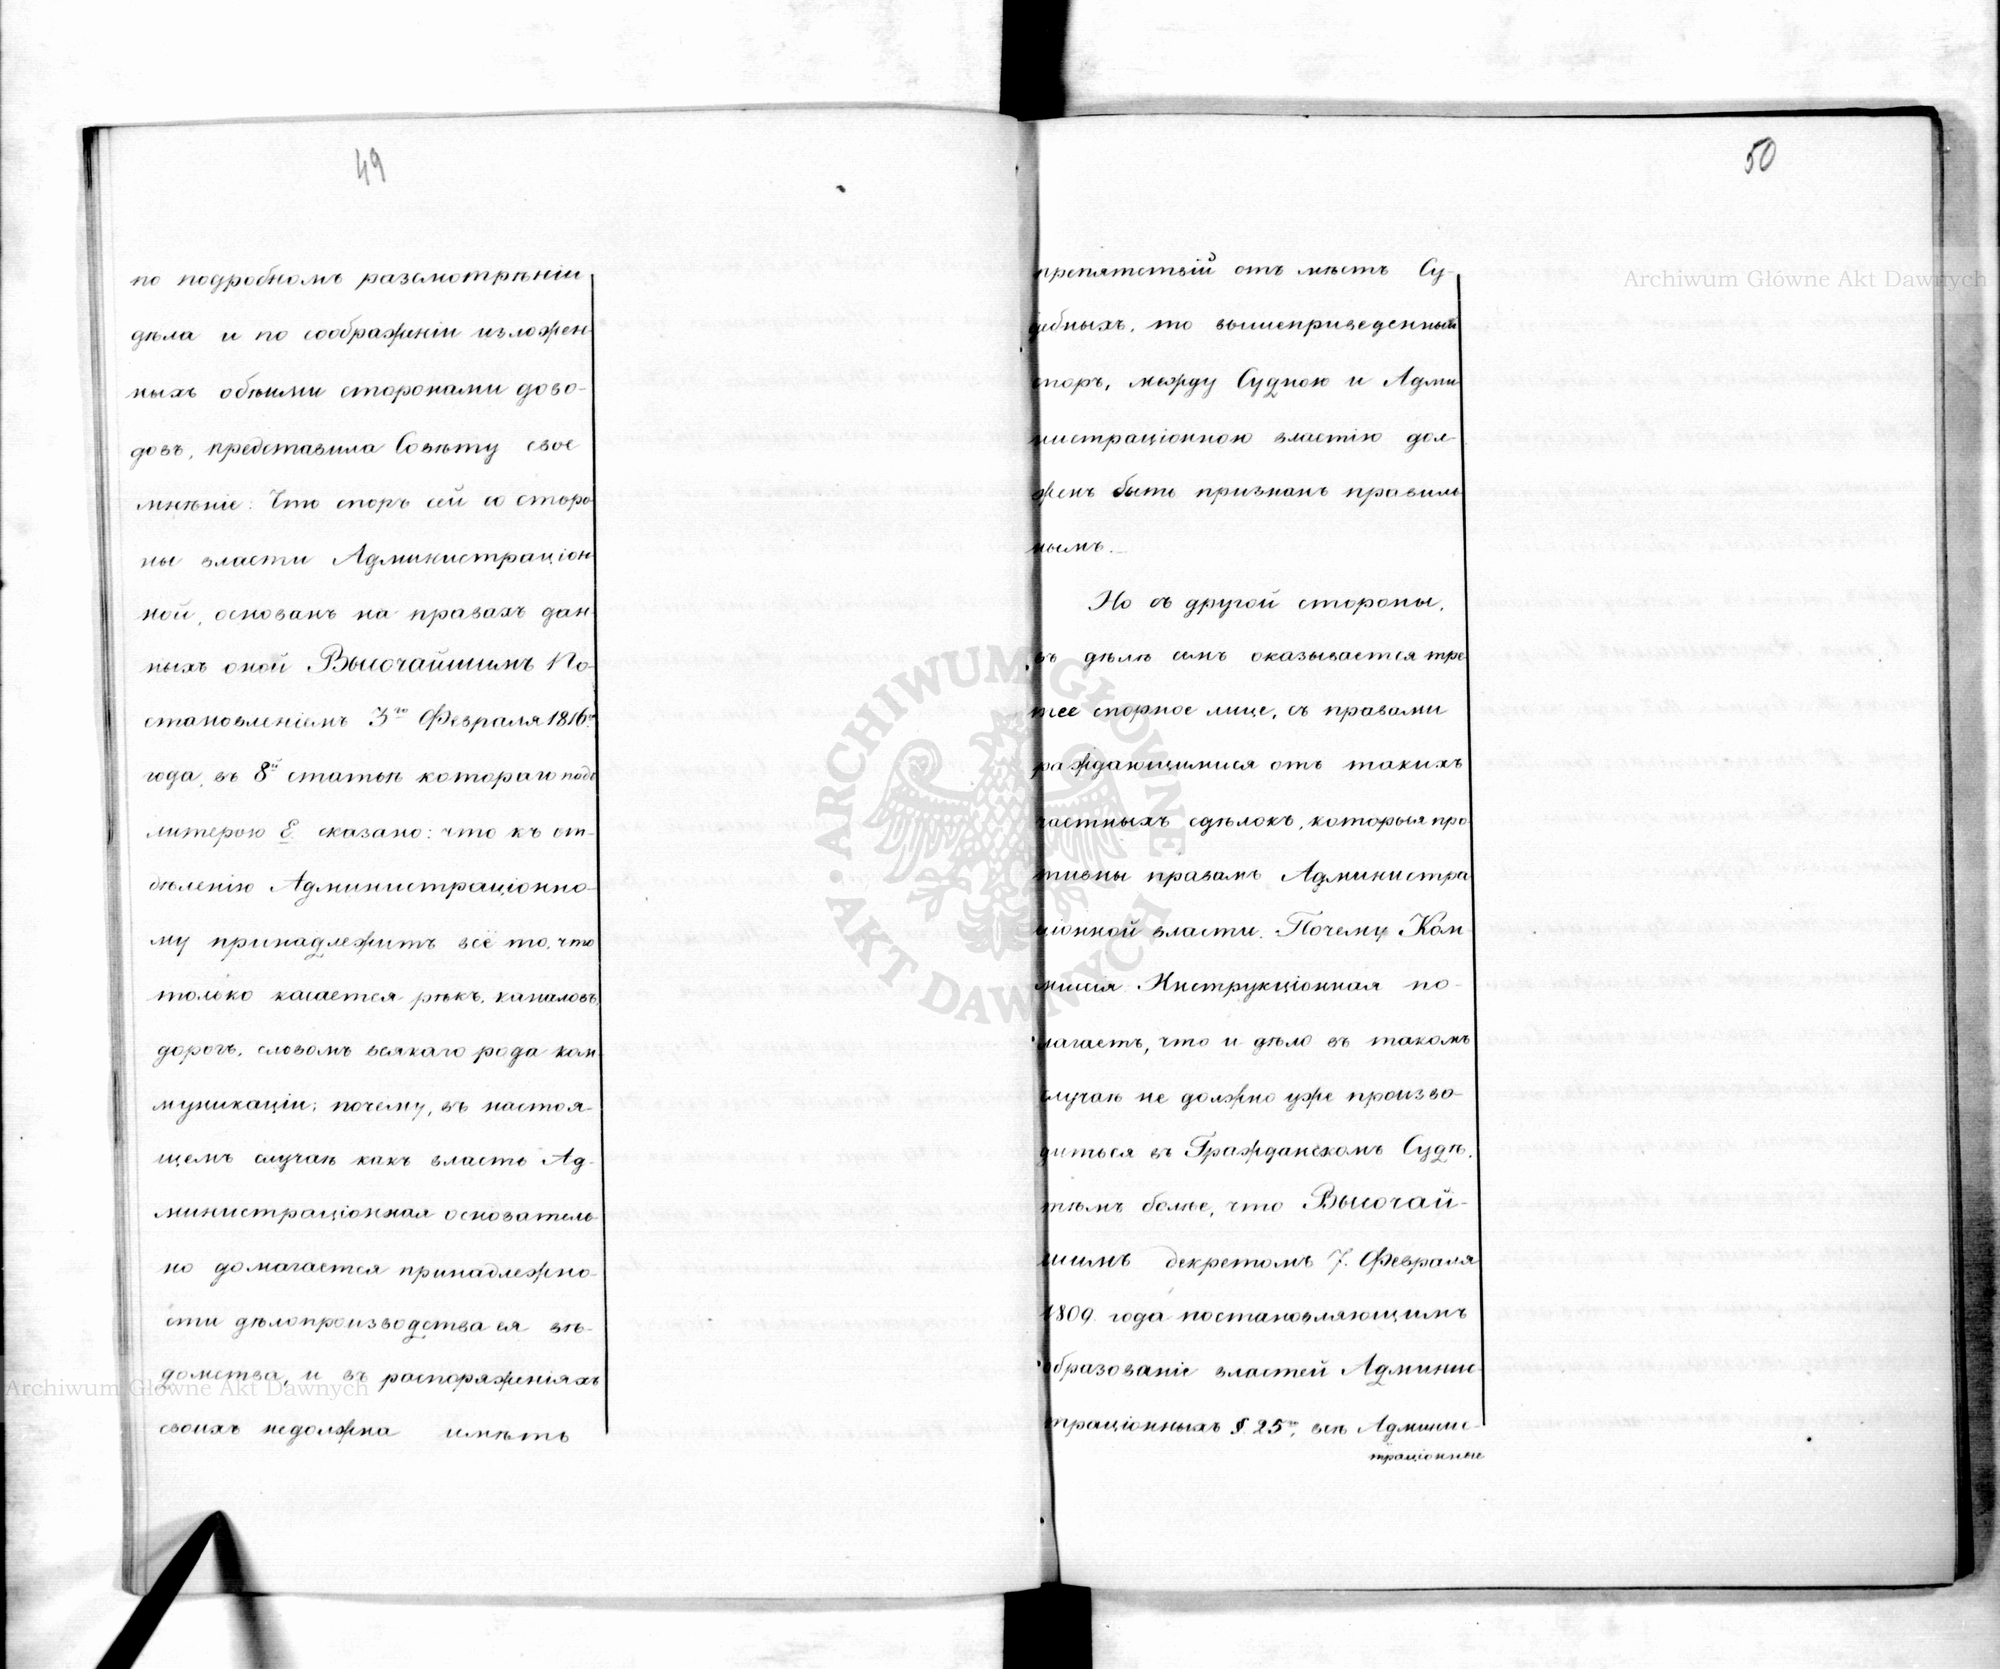 49
по подробномъ разсмотрѣніи
дѣла и по соображеніи изложен-
ныхъ обѣими сторонами дово-
довъ, представила Совѣту свое
мнѣніе: Что споръ сей со сторо
ны власти Администраціон
ной, основанъ на правахъ дан-
ныхъ оной Высочайшимъ По-
становленіемъ 3го Февраля 1816го
года, въ 8й статьѣ котораго подъ
литерою Е сказано: что къ от-
дѣленію Администраціонно-
му принадлежитъ всё то, что
только касается рѣкъ, каналовъ,
дорогъ, словомъ всякаго рода ком-
муникаціи; почему, въ настоя-
щемъ случаѣ какъ власть Ад-
министраціонная основатель
но домагается принадлежно-
сти дѣлопроизводства ея вѣ-
домства, и въ распоряженіяхъ
своихъ недолжна имѣть
50
препятствій отъ мѣстъ Су-
дебныхъ, то вышеприведенный
споръ, между Судною и Адми
нистраціонною властію дол-
женъ быть признанъ правиль
нымъ.
Но съ другой стороны,
въ дѣлѣ семъ оказывается тре
тее спорное лице, съ правами
раждающимися отъ такихъ
частныхъ сдѣлокъ, которыя про
тивны правамъ Администра
ціонной власти. Почему Ком
мисія Инструкціонная по-
лагаетъ, что и дѣло въ такомъ
случаѣ не должно уже произво-
диться въ Гражданскомъ Судѣ,
тѣмъ болѣе, что Высочай-
шимъ декретомъ 7. Февраля
1809 года постановляющимъ
образованіе властей Админис
траціонныхъ §. 25м, всѣ Админис-
траціонные
Archiwum Główne Akt Dawnych
Archiwum Główne Akt Dawnych
ARCHIWUM GŁÓWNE AKT DAWNYCH